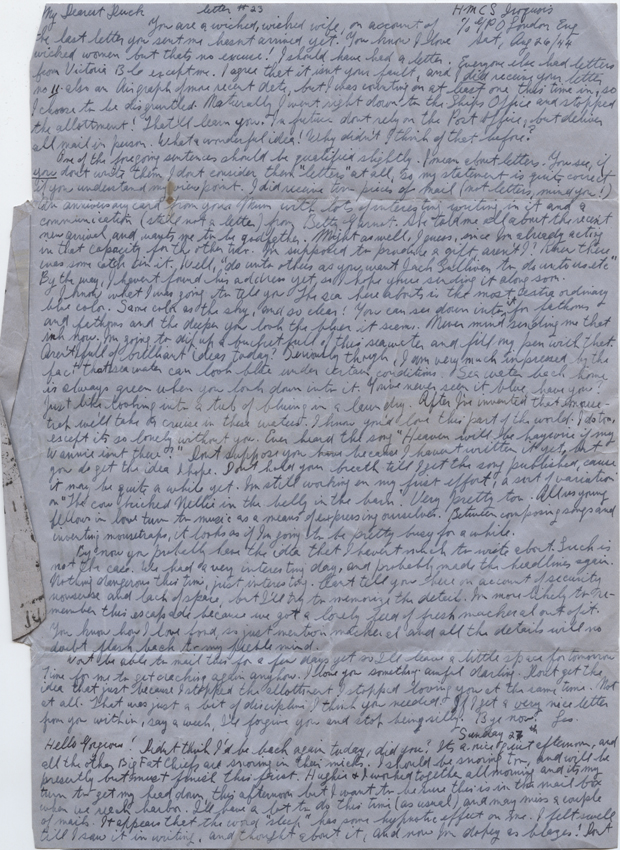 My Dearest Duck letter #23 H.M.C.S. Iroquois
You are a wicked, wicked wife, on account of % G.P.O. London Eng
the last letter you sent me hasn't arrived yet. You know I love Sat, Aug 26/44
wicked women but that's no excuse. I should have had a letter. Everyone else had letters
from Victoria B.C. except me. I agree that it isn't your fault, and I did receive your letter
no 11 also an airgraph of more recent date, but I was counting on at least one, this time in, so
I choose to be disgruntled. Naturally I went right down to the Ship's Office and stopped
the allottment! That'll learn you. In future don't rely on the Post Office, but deliver
all mail in person. What a wonderful idea! Why didn't I think of that before?
One of the foregoing sentences should be qualified slightly. I mean about letters. You see, if
you don't write them I don't consider them "letters" at all, so my statement is quite correct
if you understand my viewpoint. I did receive two pieces of mail (not letters, mind you!)
an anniversary card from your Mum with lots of interesting writing in it and a
communication (still not a letter) from Betty. She told me all about the recent
new arrival, and wants me to be godfather. Might as well, I guess, since I'm already acting
in that capacity for the other two. I'm supposed to provide a gift, aren't I? Knew there
was some catch in it. Well, "do unto others as you want Jack Sullivan to do unto us etc"
By the way, I haven't found his address yet, so I hope you're sending it along soon.
I know what I was going to tell you. The sea hereabouts is the most extraordinary
blue color. Same color as the sky, and so clear! You can see down into it for fathoms
and fathoms and the deeper you look the bluer it seems. Never mind sending me that
ink now. I'm going to dip up a bucket full of this sea water and fill my pen with that.
Aren't I full of brilliant ideas today? Seriously though, I am very much impressed by the
fact that sea water can look blue under certain conditions. Sea water back home
is always green when you look down into it. You've never seen it blue, have you?
Just like looking into a tub of blueing in a laundry. After I've invented that mouse-
trap we'll take a cruise in these waters. I know you'd love this part of the world. I do too,
except it's so lonely without you. Ever heard the song "Heaven will be haywire if my
Wannie isn't there"? Don't suppose you have because I haven't written it yet, but
you do get the idea I hope. Don't hold your breath till I get the song published, cause
it may be quite a while yet. I'm still working on my first effort, a sort of variation
on "The cow kicked Nellie in the belly in the barn." Very pretty too. All us young
fellows in love turn to music as a means of expressing ourselves. Between composing songs and
inventing mousetraps, it looks as if I'm going to be pretty busy for a while.
By now you probably have the idea that I haven't much to write about. Such is
not the case. We had a very interesting day, and probably made the headlines again.
Nothing dangerous this time, just interesting. Can't tell you there on account of security
nonsense and lack of space, but I'll try to memorize the details. I'm more likely to re-
member this escapade because we got a lovely feed of fresh mackerel out of it.
You know how I love food, so just mention mackerel and all the details will no
doubt flash back to my feeble mind.
Won't be able to mail this for a few days yet so I'll leave a little space for tomorrow
Time for me to get cracking again anyhow. I love you something awful darling. Don't get the
idea that just because I stopped the allottment, I stopped loving you at the same time. Not
at all. That was just a bit of discipline I think you needed. If I get a very nice letter
from you within, say a week I'll forgive you and stop being silly! Bye now. Les.
Sunday 27th
Hello Gorgeous! Didn't think I'd be back again today, did you? It's a nice quiet afternoon, and
all the other Big Fat Chiefs are snoring in their micks. I should be snoring too, and will be
presently but must finish this first. Hughie & I worked together all morning and it's my
turn to get my head down, this afternoon but I want to be sure this is in the mail box
when we reach harbor. I'll have a lot to do this time (as usual) and may miss a couple
of mails. It appears that the word "sleep" has some hypnotic effect on me. I felt swell
till I saw it in writing, and thought about it, and now I'm dopey as blazes! Don't